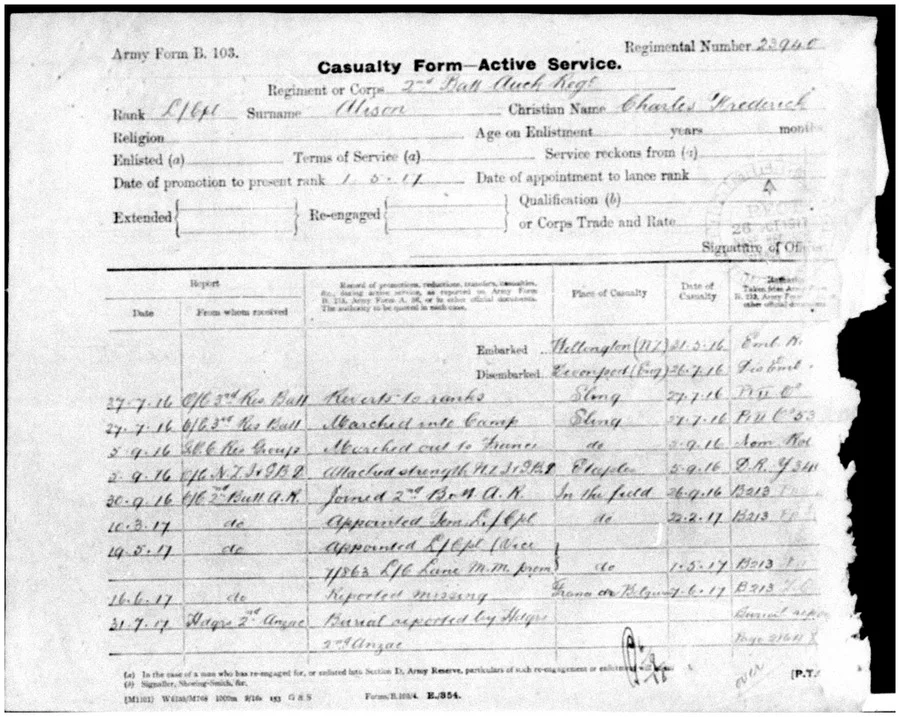 Army Form B. 103.
Regimental Number 23940
Casualty Form—Active Service.
Regiment or Corps 2nd Batt Auck Regt
Rank L/Cpl Surname Alison Christian Name Charles Frederick
Religion Age on Enlistment years months
Enlisted (a) Terms of Service (a) Service reckons from (a)
Date of promotion to present rank 1.5.17 Date of appointment to lance rank
Extended Re-engaged Qualification (b)
or Corps Trade and Rate
26 OCT 1917
Signature of Officer
Report
Date From whom received
Record of promotions, reductions, transfers, casualties, &c., during active service, as reported on Army Form B. 213, Army Form A. 36, or in other official documents. The authority to be quoted in each case.
Place of Casualty Date of Casualty
Remarks Taken from Army Form B. 213, Army Form other official documents
Embarked Wellington (NZ) 21-5-16 Emb R.
Disembarked Devonport (Eng) 26-7-16 Disemb
27-7-16 O/C 3rd Res Batt Reverts to ranks Sling 27-7-16
27-7-16 O/C 3rd Res Batt Marched into Camp Sling 27-7-16
5-9-16 G.O.C Res Group Marched out to France do 5-9-16 Nom Rol
5-9-16 O/C N.Z I & G B D Attached strength NZ I & G BD Etaples 5-9-16 D.R.
30-9-16 O/C 2nd Batt A.R. Joined 2nd Batt A.R. In the field 26-9-16 B213
10-3-17 do Appointed Tem L/Cpl do 22-2-17 B213
19-5-17 do Appointed L/Cpl (Vice
7/863 L/C Lane M.M. prom do 1-5-17 B213
16-6-17 do Reported missing France or Belgium 7-6-17 B213
31-7-17 Hdqrs 2nd Anzac Burial reported by Hdqrs Burial repor
2nd Anzac Page
over
(a) In the case of a man who has re-engaged for, or enlisted into Section D, Army Reserve, particulars of such re-engagement or enlistment
(b) Signaller, Shoeing-Smith, &c.
[P.T.
1000m 9/16 G & S Forms/B.103/4. E./354.